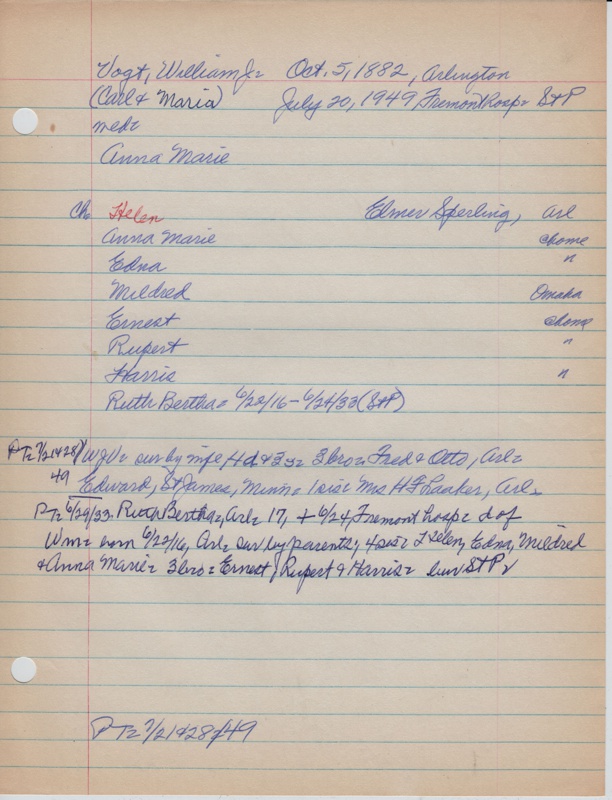 Vogt, William J= Oct. 5, 1882, Arlington
(Carl & Maria) July 20, 1949 Fremont hosp= St P
med=
Anna Marie
Ch. Helen Elmer Sperling, Arl
Anna Marie @home
Edna "
Mildred Omaha
Ernest @home
Rupert "
Harris "
Ruth Bertha= 6/22/16 - 6/24/33 (St P)
PT= 7/21&28/49 WJV= sur by wife, 4d & 3s= 3bro= Fred & Otto, Arl=
Edward, St James, Minn= 1sis= Mrs H F Laaker, Arl.
PT= 6/29/33. Ruth Bertha=, Arl= 17, + 6/24, Fremont hosp= d of
Wm= born 6/22/16, Arl= sur by parents; 4sis= Helen, Edna, Mildred
& Anna Marie= 3bro= Ernest, Rupert & Harris= bur St P
PT= 7/21&28/49